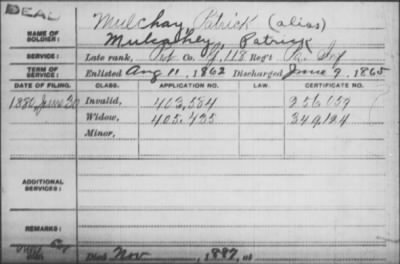 DEAD
NAME OF SOLDIER: Mulchay, Patrick (alias)
Mulcahey, Patrick
SERVICE: Late rank, Pvt Co. G, 118 Reg't Pa. Inf
TERM OF SERVICE: Enlisted Aug 11, 1862 Discharged June 9, 1865
DATE OF FILING. CLASS. APPLICATION NO. LAW. CERTIFICATE NO.
1880, June 30 Invalid, 403,584 256,059
Widow, 405,435 349,124
Minor,
ADDITIONAL SERVICES:
REMARKS:
Died Nov , 1887, at